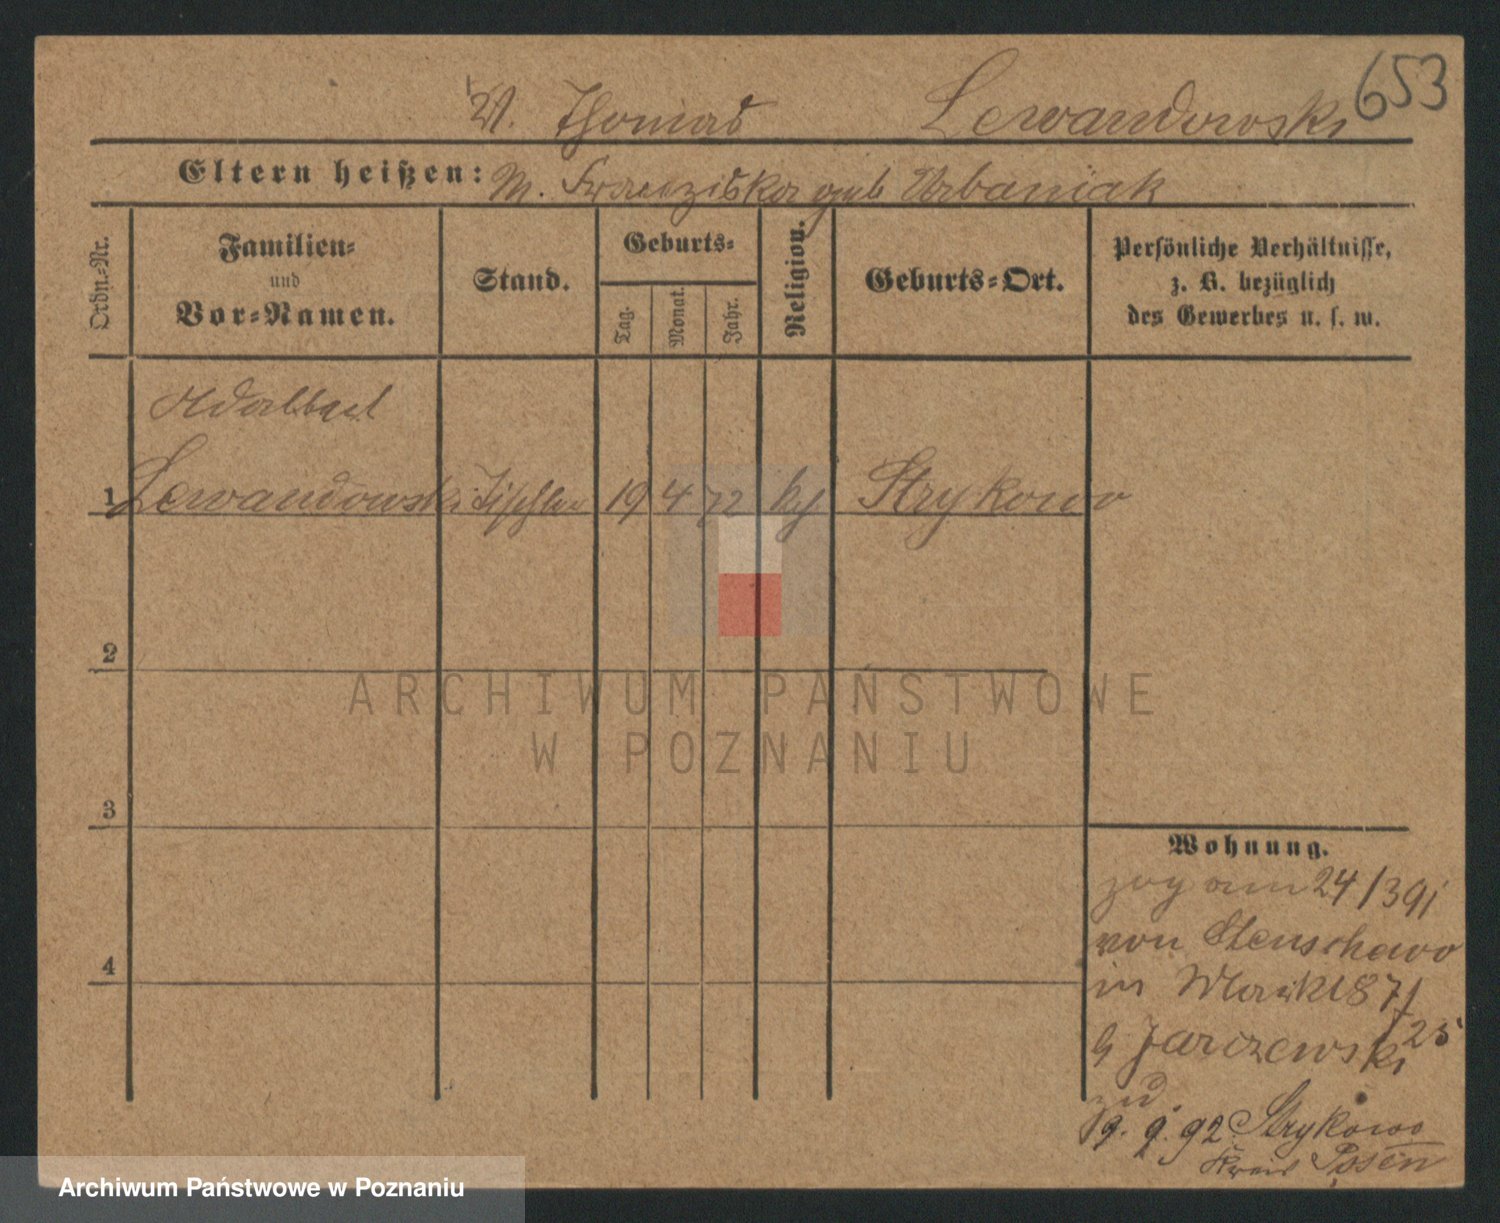 653
V. Thomas Lewandowski
Eltern heißen: M. Franziska geb Urbaniak
Ordn.-Nr.
Familien-
und
Vor-Namen.
Stand.
Geburts-
Tag.
Monat.
Jahr.
Religion.
Geburts-Ort.
Persönliche Verhältnisse,
z. B. bezüglich
des Gewerbes u. s. w.
Adalbert
1 Lewandowski Tischler 19 4 72 kh Strykowo
2
3
4
Wohnung.
zog am 24/3 91
von Stenschewo
in Markt 87/
25
b Jarczewski
9. 92 Strykowo
Kreis Posen
ARCHIWUM PAŃSTWOWE
W POZNANIU
Archiwum Państwowe w Poznaniu